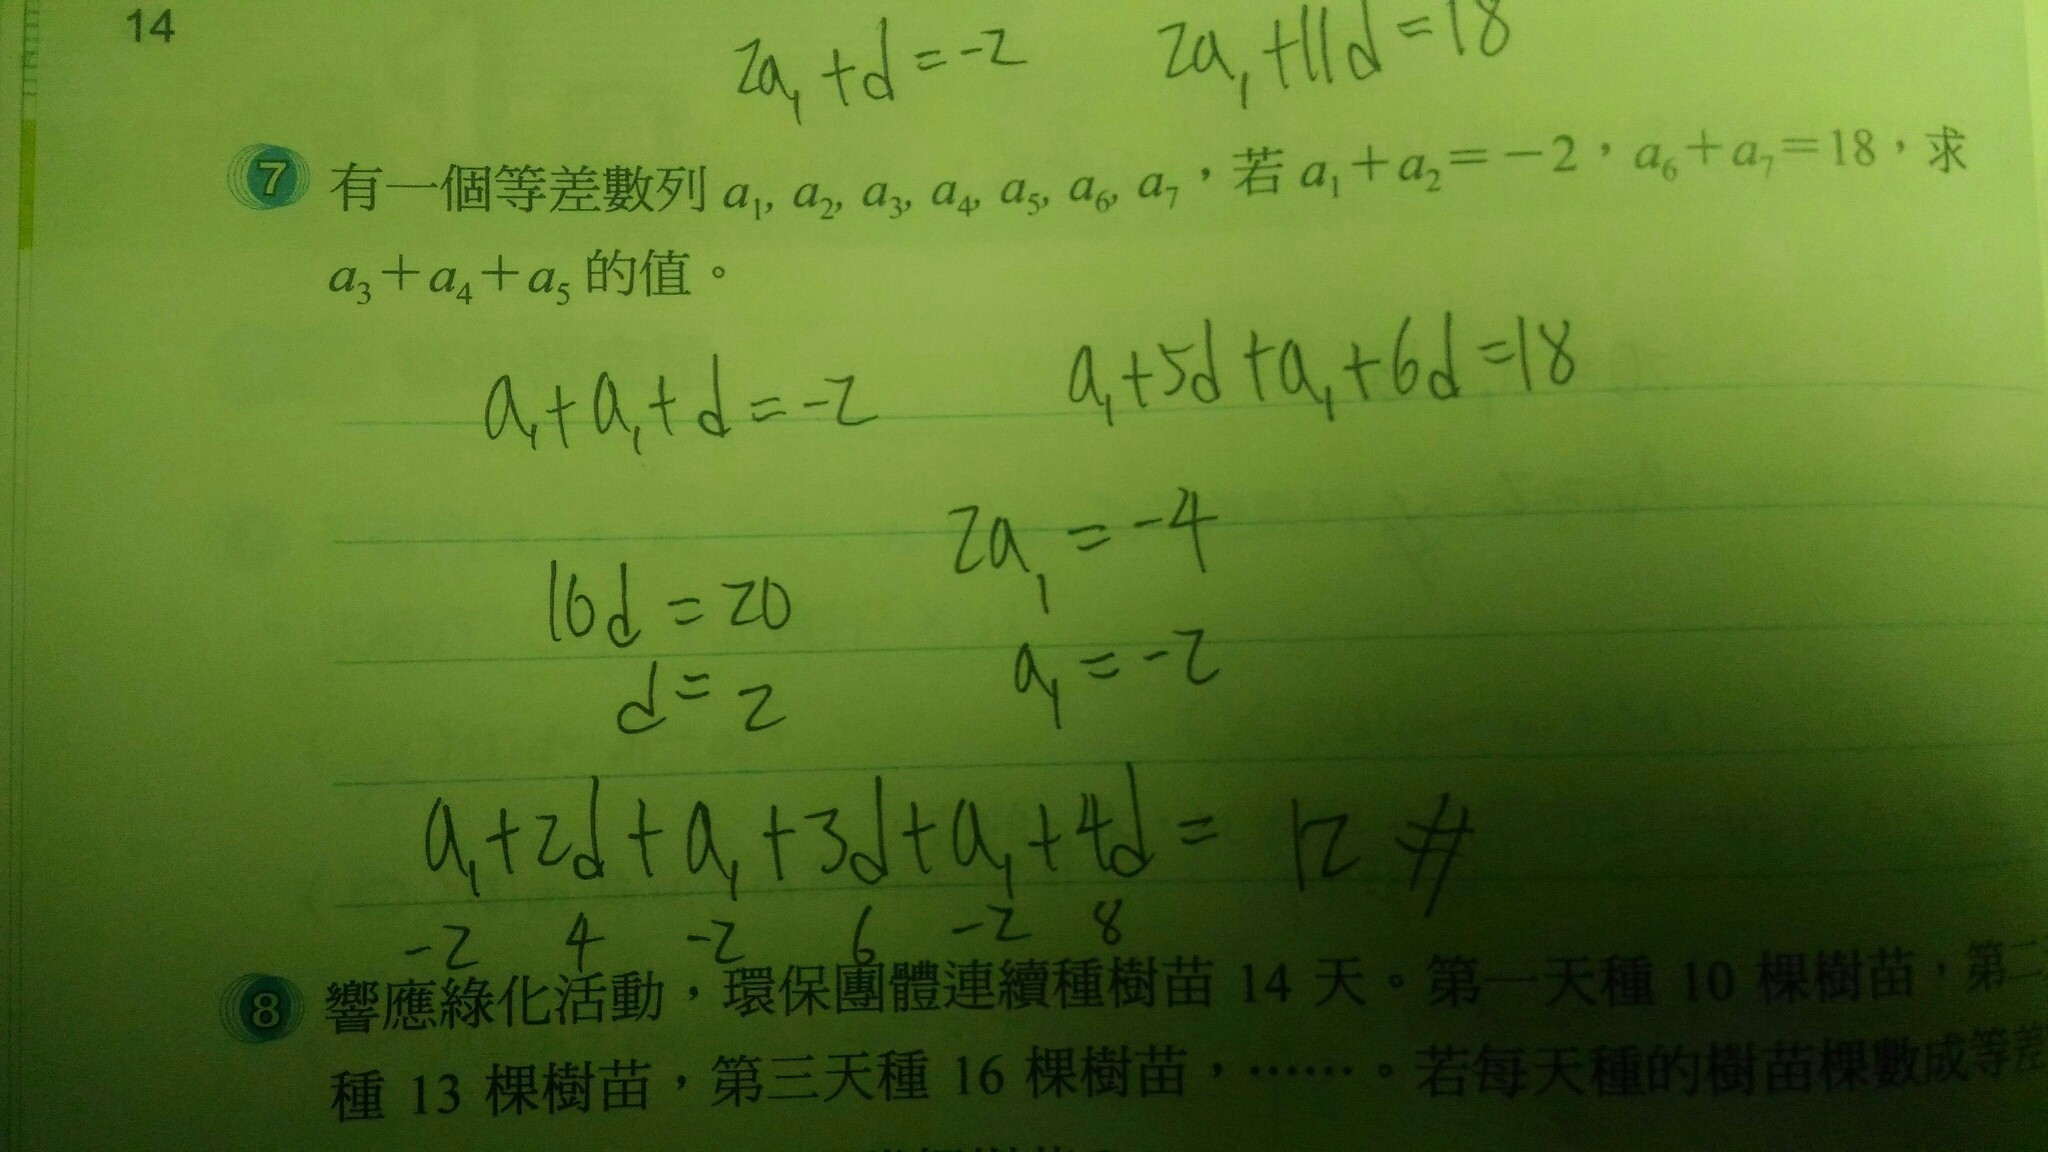 14
2a₁+d=-2 2a₁+11d=18
7 有一個等差數列 a₁, a₂, a₃, a₄, a₅, a₆, a₇，若 a₁＋a₂＝－2，a₆＋a₇＝18，求
a₃＋a₄＋a₅ 的值。
a₁+a₁+d=-2 a₁+5d+a₁+6d=18
2a₁=-4
10d=20
a₁=-2
d=2
a₁+2d+a₁+3d+a₁+4d= 12 #
-2 4 -2 6 -2 8
8 響應綠化活動，環保團體連續種樹苗 14 天。第一天種 10 棵樹苗，第二
種 13 棵樹苗，第三天種 16 棵樹苗，……。若每天種的樹苗棵數成等差